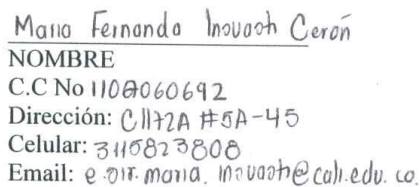 Maria Fernanda Inuooh Cerón
NOMBRE
C.C No 1108060692
Dirección: Cll72A #5A-45
Celular: 3115823808
Email: e.oir.maria.inuooh@cali.edu.co